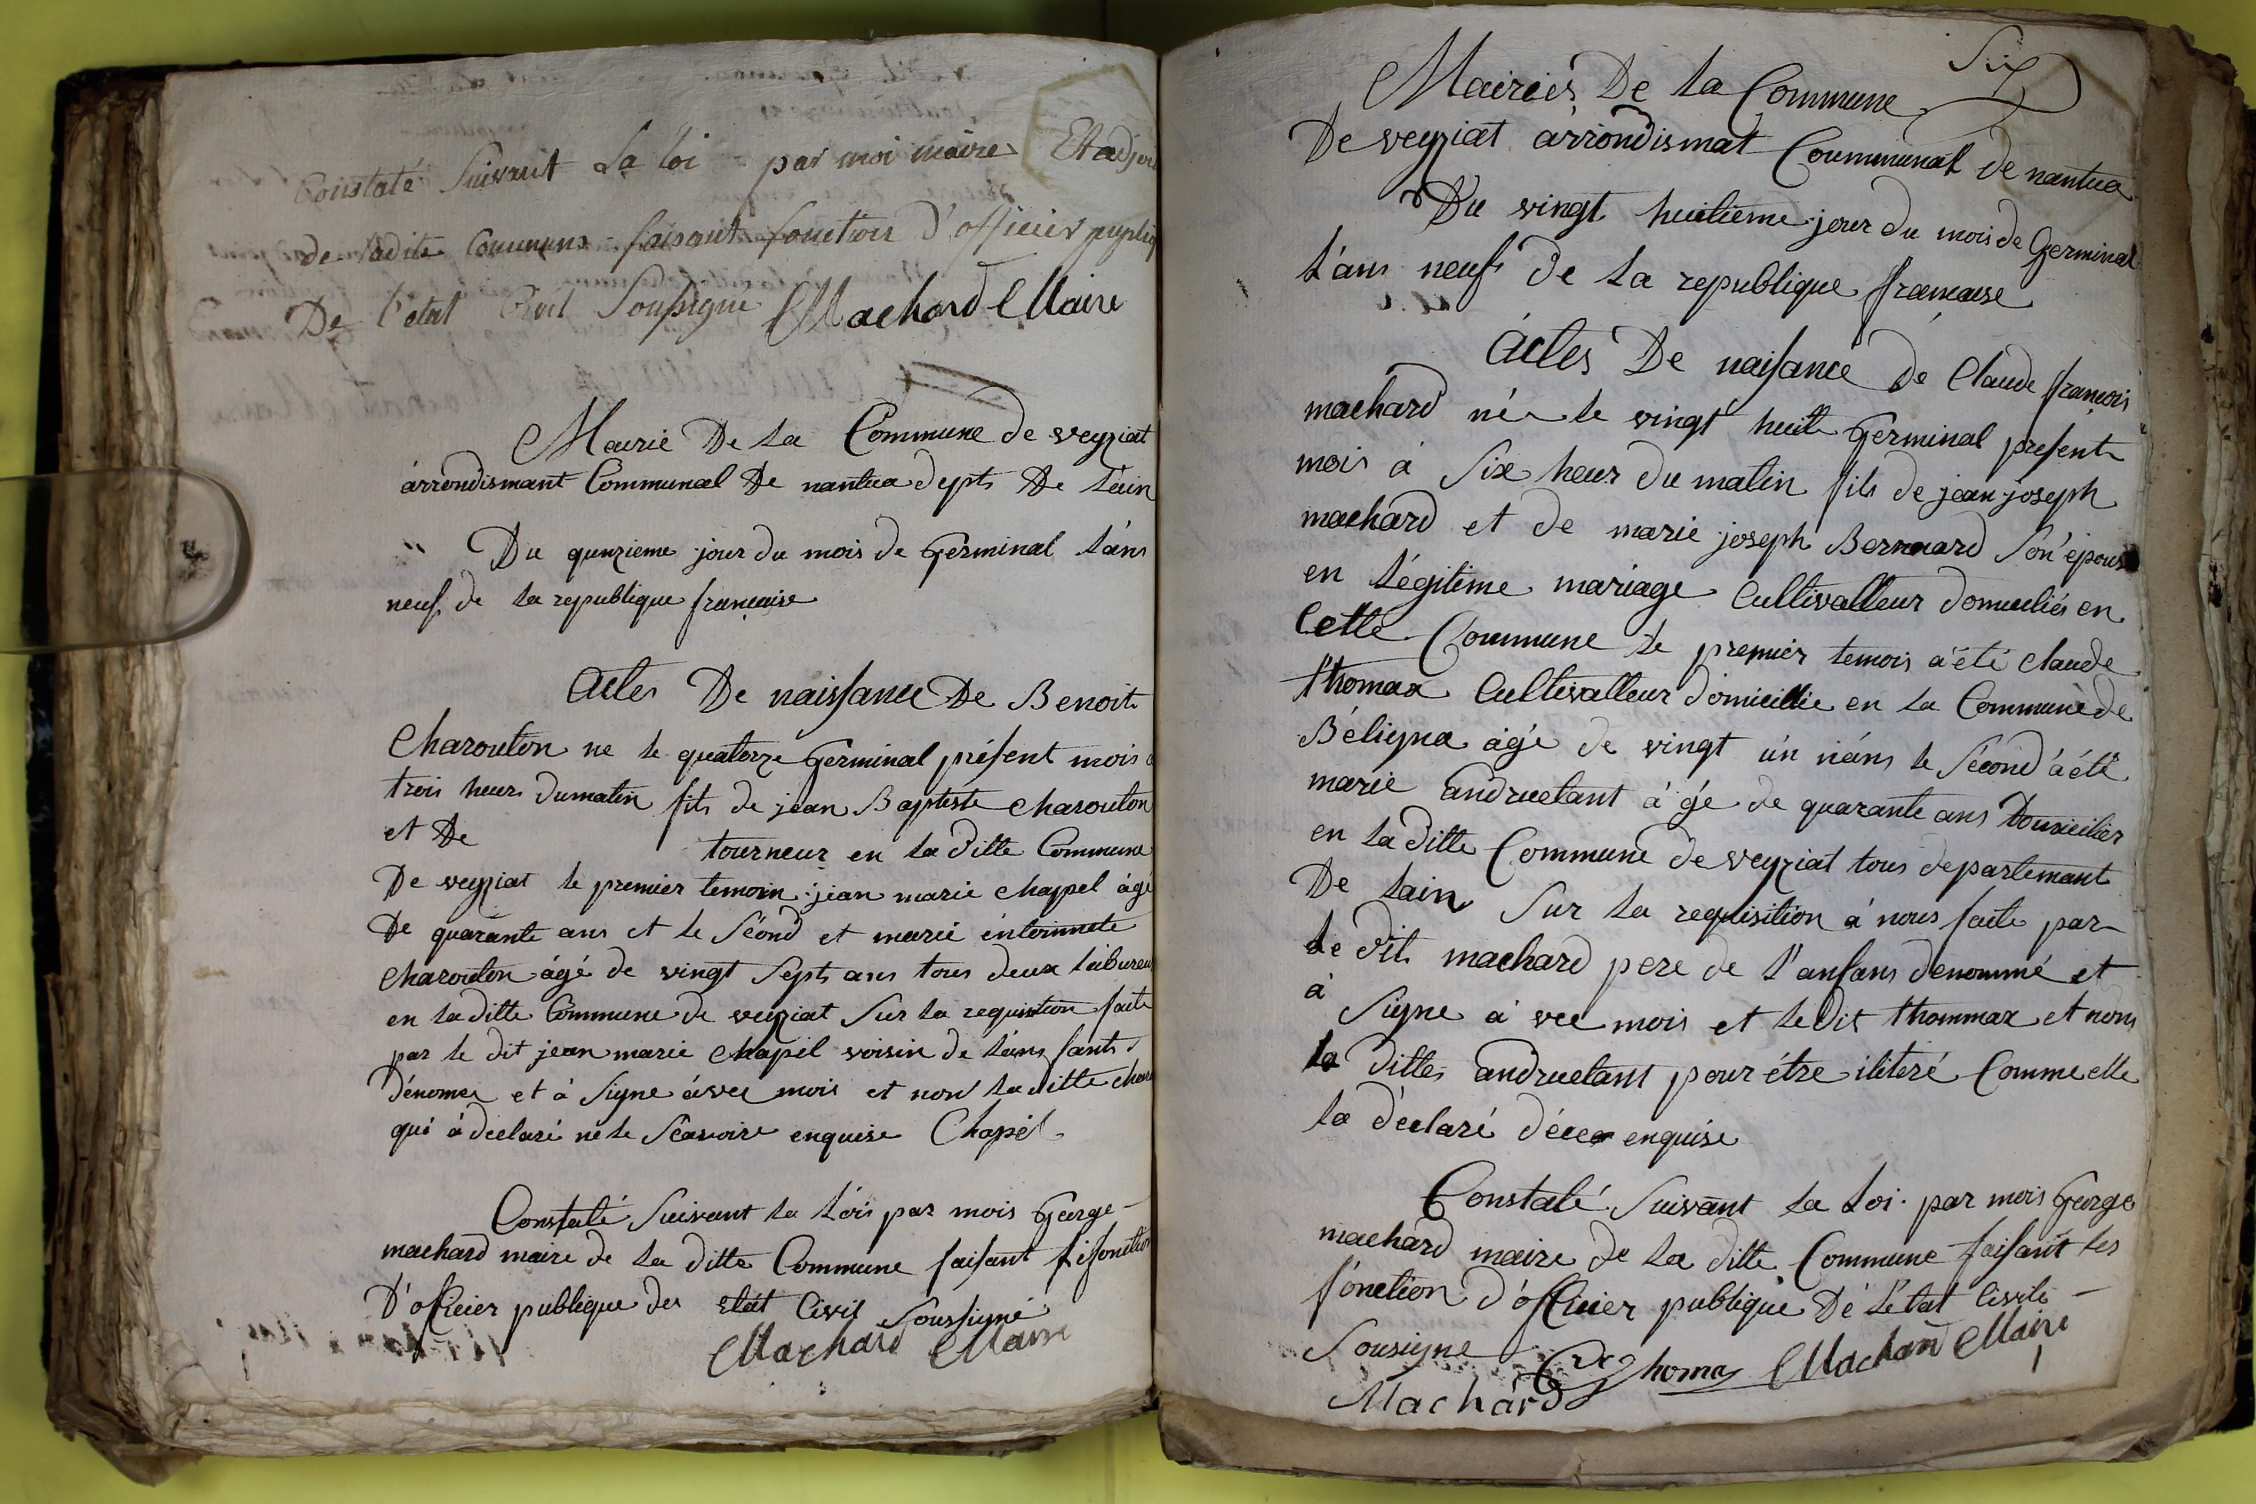 Constaté Suivant La loi par moi maire Et adjoi
de ladite Commune faisant fonction d'officier
De l'etat Civil Soussigné Machard Maire
Mairie De la Commune de veyziat
arrondismant Communal De nantua dept De Lain
Du quinzieme jour du mois de Germinal L'ans
neuf de la republique française
Actes De naissance De Benoit
Charouton ne le quatorze Germinal présent mois à
trois heurs du matin fils de jean Baptiste charouton
et De tourneur en la ditte Commune
De veyziat le premier temoin jean marie chappel àgé
De quarante ans et le Séond et marie
Charouton àgé de vingt Sept ans tous deux
en la ditte Commune de veyziat Sur la requisition faite
par le dit jean marie Chapel voisin de l'ains fants
Dénomer et à Signe àvec mois et non la ditte
qui à declaré ne le Scavoire enquise Chapel
Constaté Suivant la Lois par mois George
machard maire de la ditte Commune faisant
D'officier publique des etat Civil Soussigné
Machard Maire
Six
Mairies De la Commune
De veyziat arrondismat Communal de nantua
Du vingt huitieme jour du mois de Germinal
L'ans neuf de la republique française
Actes De naisance de Claude françois
machard né le vingt huitt Germinal present
mois à Six heur du matin fils de jean joseph
machard et de marie joseph Bernard Son épouse
en Légitime mariage Cultivatteur domiciliés en
Cette Commune le premier temois à été claude
thomax Cultivatteur domicillie en la Commune de
Béligna àgé de vingt un náns le Sécond à été
marie andruetant à gé de quarante ans Domicilier
en la ditte Commune de veyziat tous departemant
De Lain Sur la requisition à nous faite par
Le dit machard pere de l'anfans denommé et
à Signe à vec mois et ledit thommax et nons
la ditte andruetant pour être ilitéré Comme elle
la déclaré enquise
Constaté Suivant la Loi par mois George
machard maire de la ditte Commune faisant les
fonction d'officier publique De L'etat Civile
Sousigne Thomas Machard Maire
Machard